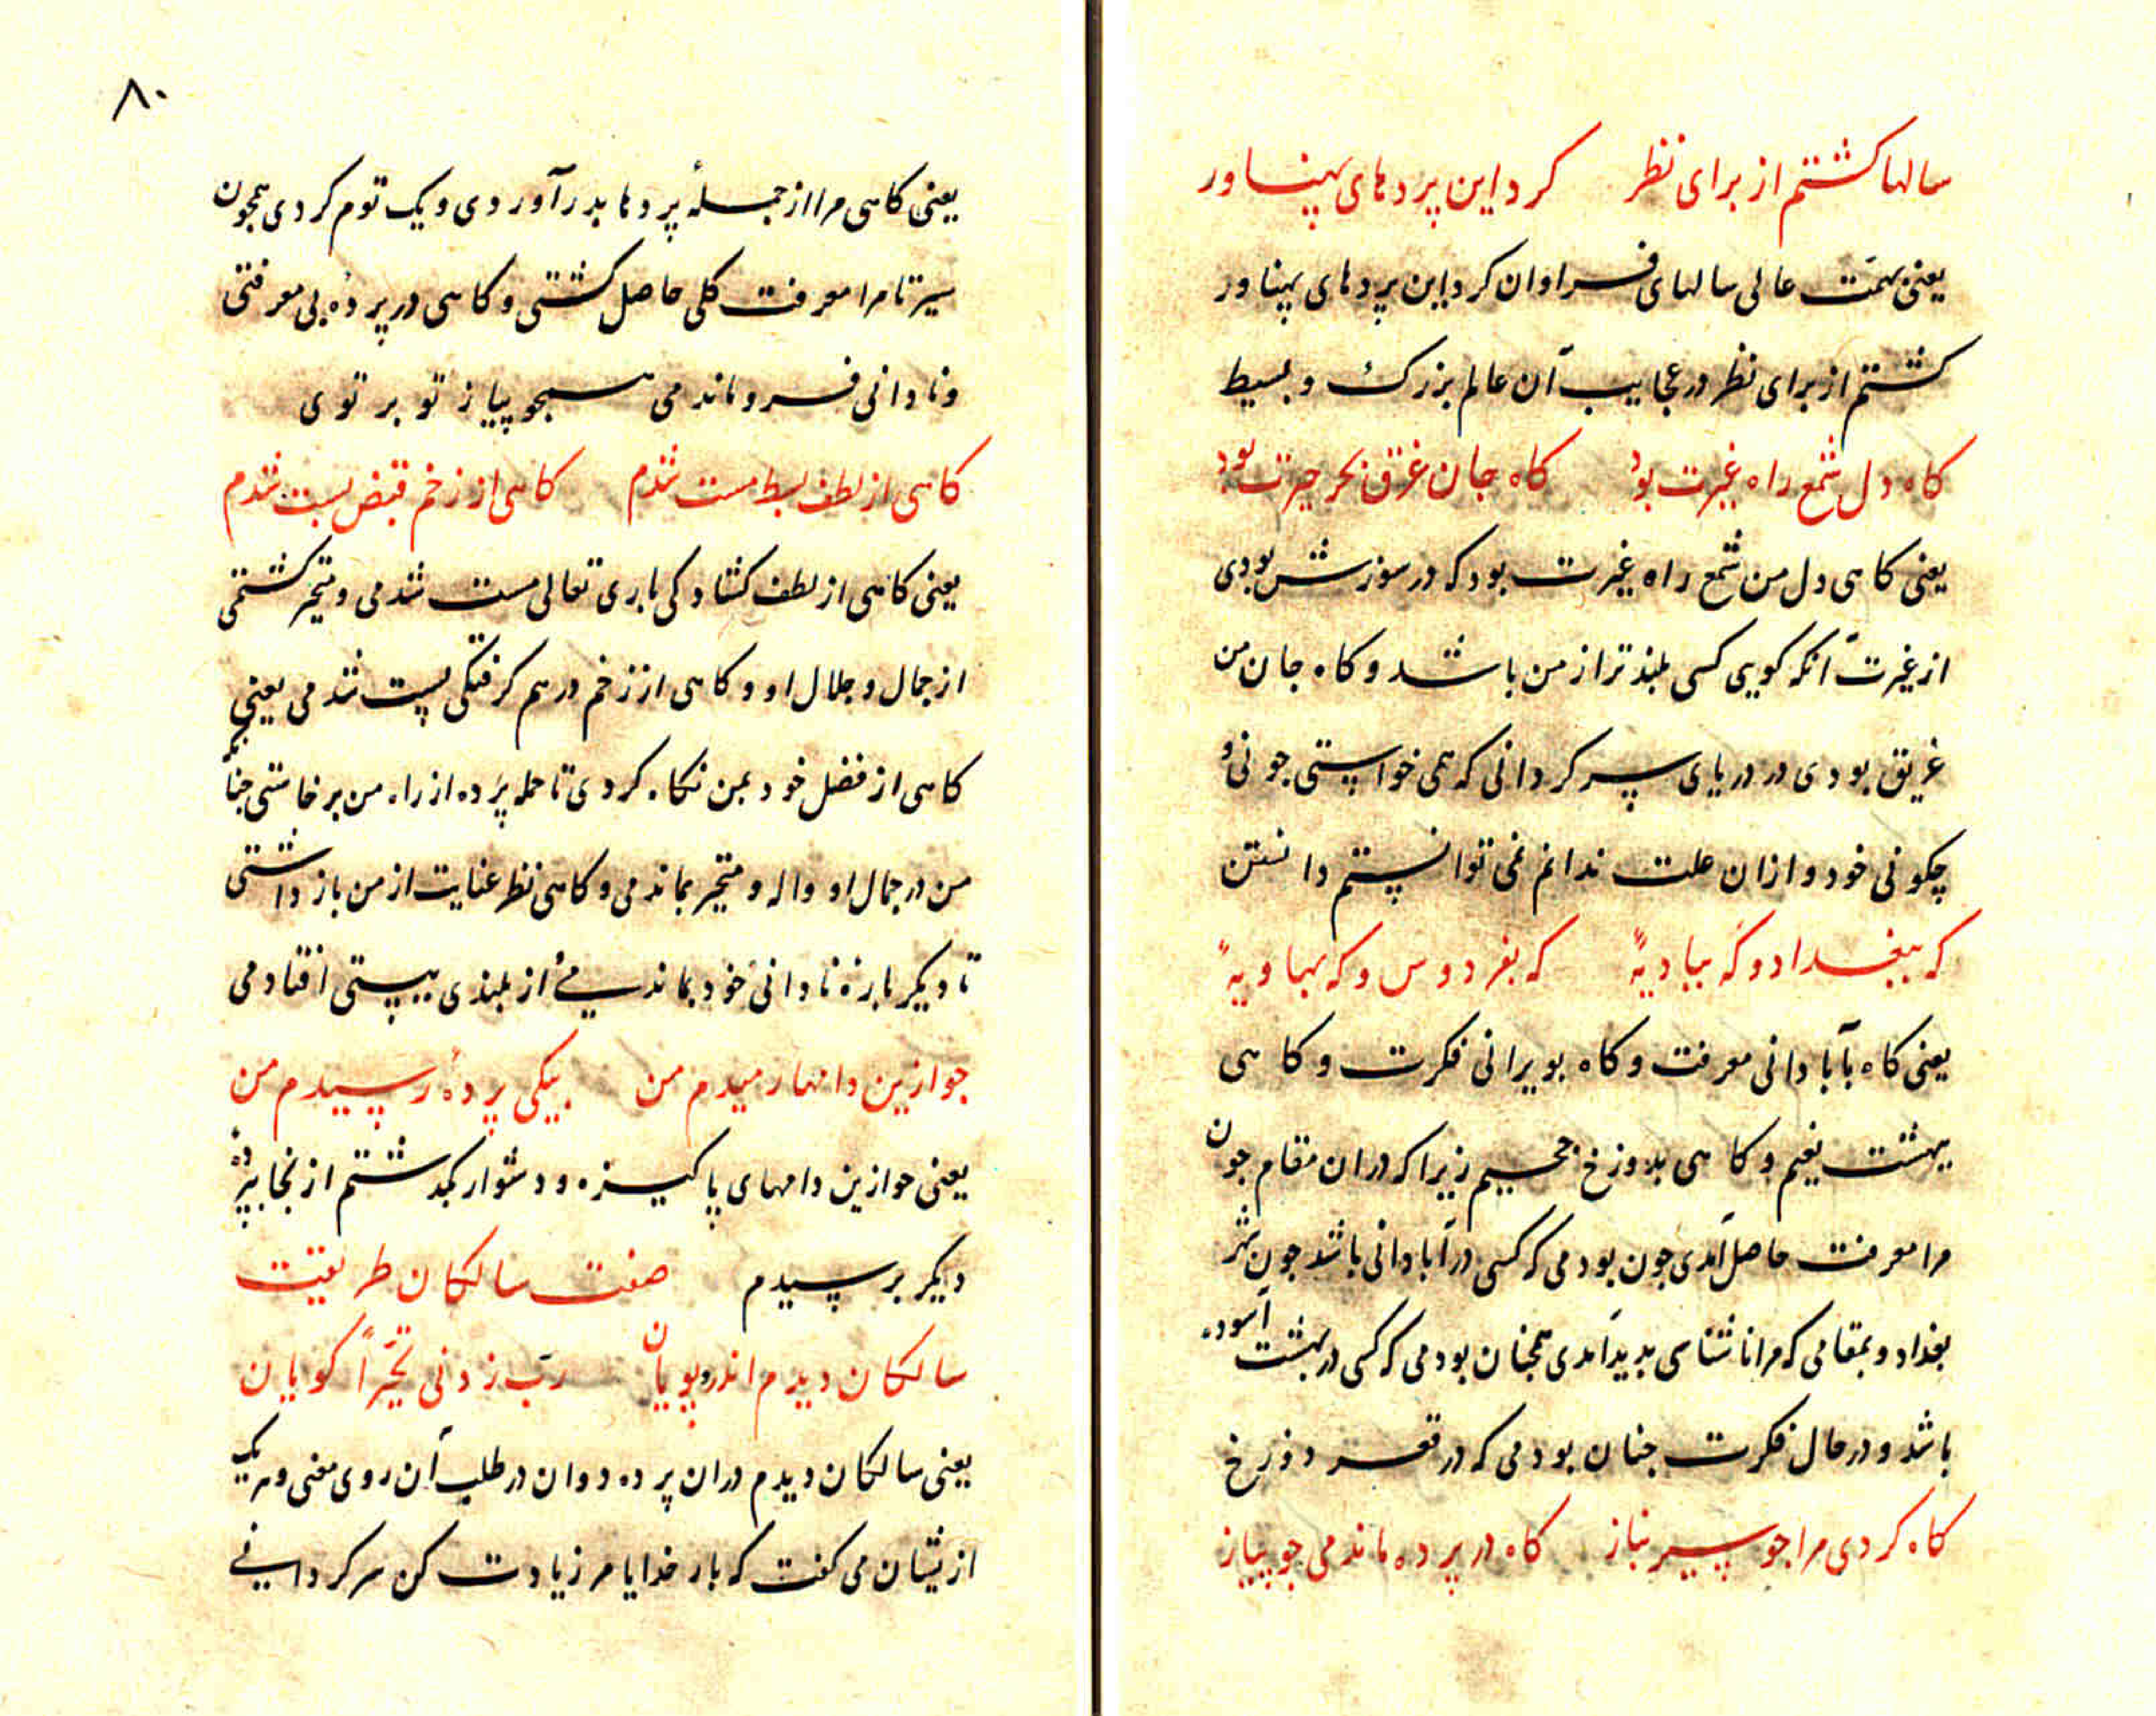 سالها کشتم از برای نظر کرد این پردهای پهناور
یعنی بهمّت عالی سالهای فراوان کرد این پردهای پهناور
کشتم از برای نظر در عجایب آن عالم بزرک و بسیط
کاه دل شمع راه غیرت بود کاه جان غرق بحر حیرت بود
یعنی کاهی دل من شمع راه غیرت بود که در سوزش بودی
از غیرت آنکه کویی کسی بلندتر از من باشد و کاه جان من
غریق بودی در دریای سرکردانی که همی خواستی جونی و
چکونی خود و ازان علت ندانم نمی توانستم دانستن
که ببغداد و که ببادیهً که بفردوس و که بهاویهً
یعنی کاه بآبادانی معرفت و کاه بویرانی فکرت و کاهی
ببهشت نعیم و کاهی بدوزخ جحیم زیرا که دران مقام جون
مرا معرفت حاصل آمدی جون بودمی که کسی در آبادانی باشد جون شهر
بغداد و بمقامی که مرا ناشناسی بدید آمدی همجنان بودمی که کسی در بهشت آسوده
باشد و در حال فکرت جنان بودمی که در قعر دوزخ
کاه کردی مرا جو سیر نیاز کاه در پرده ماندمی جو پیاز
۸۰
یعنی کاهی مرا از جملهٔ پردها بدر آوردی و یک توم کردی همجون
سیر تا مرا معرفت کلی حاصل کشتی و کاهی در پردهٔ بی معرفتی
و نادانی فرو ماندمی همجو پیاز تو بر توی
کاهی از لطف بسط مست شدم کاهی از زخم قبض پست شدم
یعنی کاهی از لطف کشادکی باری تعالی مست شدمی و متحیر کشتمی
از جمال و جلال او و کاهی از زخم درهم کرفتکی پست شدمی یعنی
کاهی از فضل خود بمن نکاه کردی تا جمله پرده از راه من برخاستی جنانکه
من در جمال او واله و متحیر بماندمی و کاهی نظر عنایت از من باز داشتی
تا دیکر باره نادانی خود بماندمی از بلندی بپستی افتادمی
جو ازین دامها رمیدم من بیکی پردهٔ رسیدم من
یعنی جو ازین دامهای پاکیزه و دشوار بکذشتم از آنجا بپردهٔ
دیکر برسیدم صفت سالکان طریقت
سالکان دیدم اندرو پویان ربّ زدنی تحیّراً کویان
یعنی سالکان دیدم دران پرده دوان در طلب آن روی معنی و هر یک
از یشان می کفت که بار خدایا مر زیادت کن سرکردانی